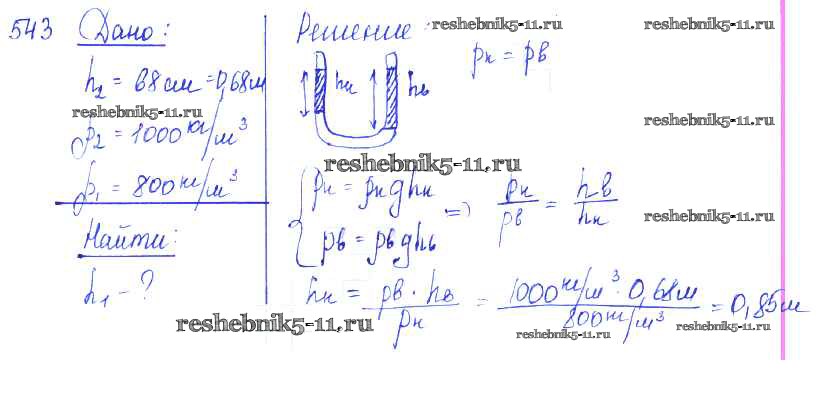 543 Дано:
h₂ = 68см = 0,68м
ρ₂ = 1000 кг/м³
ρ₁ = 800 кг/м³
Найти:
h₁ - ?
Решение:
pк = pв
hк hв
pк = ρкghк
pв = ρвghв
=> ρк/ρв = hв/hк
hк = ρв · hв / ρк = 1000 кг/м³ · 0,68м / 800 кг/м³ = 0,85м
reshebnik5-11.ru
reshebnik5-11.ru
reshebnik5-11.ru
reshebnik5-11.ru
reshebnik5-11.ru
reshebnik5-11.ru
reshebnik5-11.ru
reshebnik5-11.ru
reshebnik5-11.ru